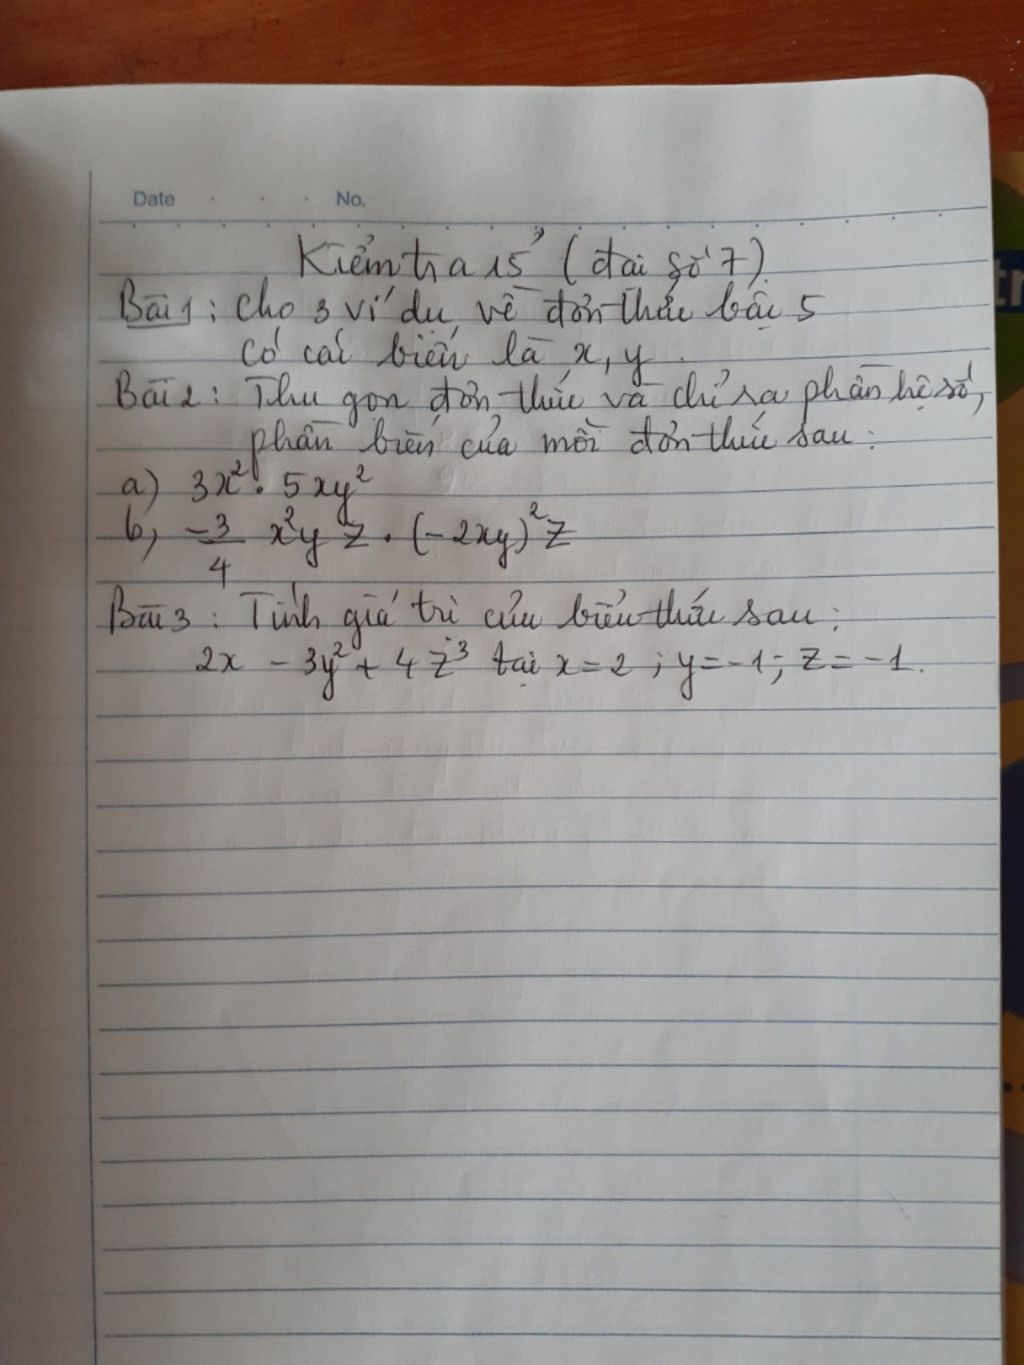 Date No.
Kiểm tra 15' (đại số 7)
Bài 1: Cho 3 ví dụ về đơn thức bậc 5
có các biến là x, y.
Bài 2: Thu gọn đơn thức và chỉ ra phần hệ số,
phần biến của mỗi đơn thức sau:
a) 3x². 5xy²
b, -3/4 x²y z . (-2xy)² z
Bài 3: Tính giá trị của biểu thức sau:
2x - 3y² + 4z³ tại x = 2; y = -1; z = -1.